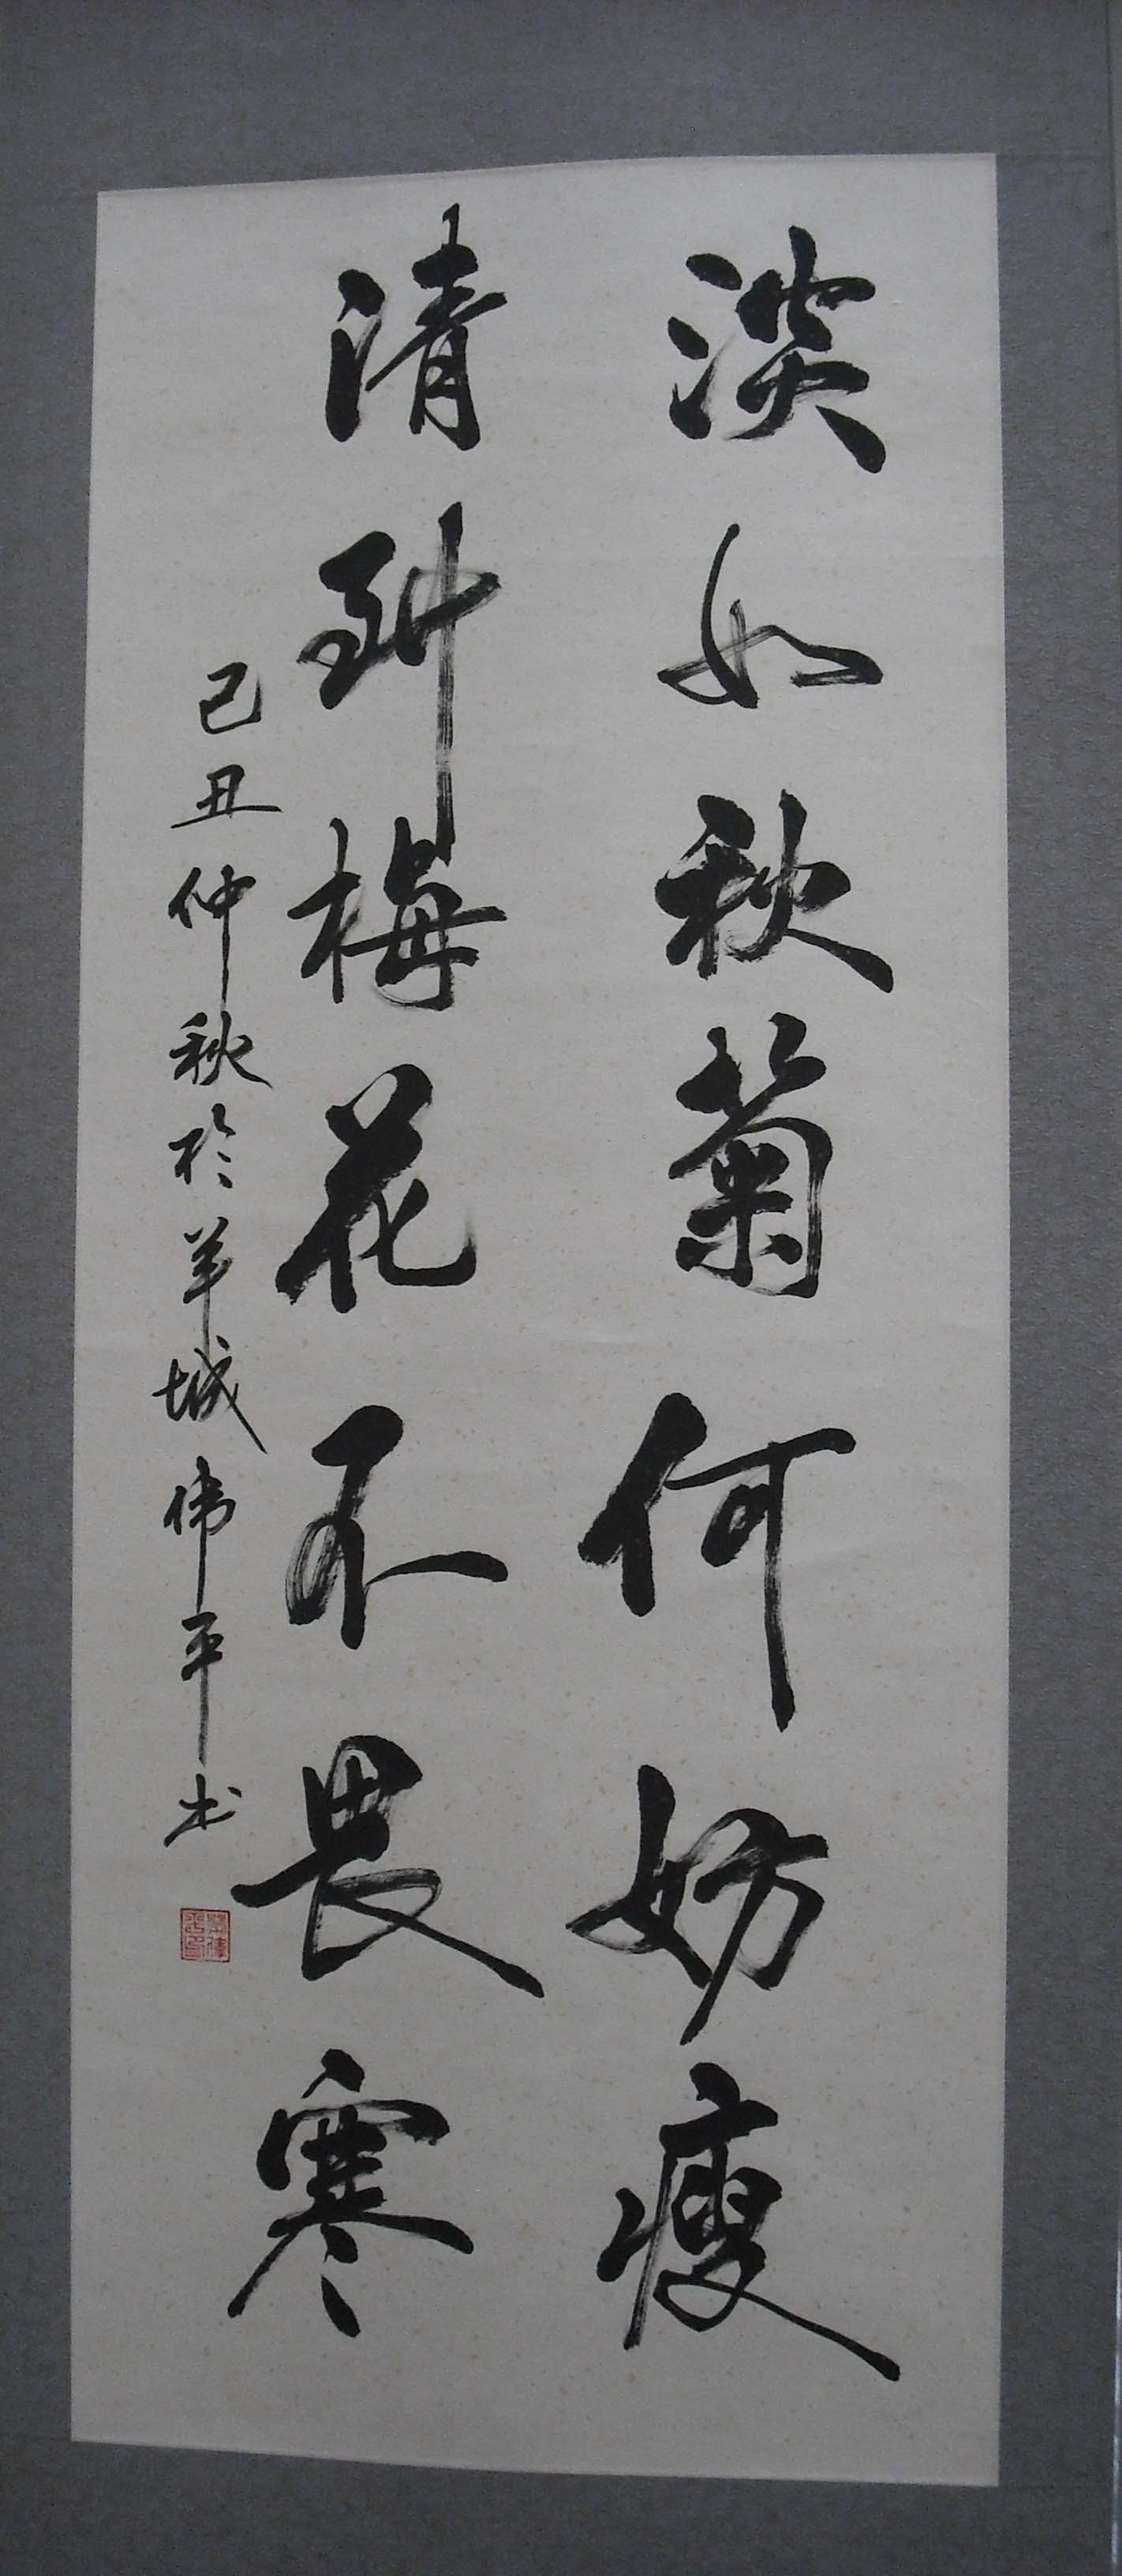 淡如秋菊何妨瘦
清到梅花不畏寒
己丑仲秋於羊城伟平书